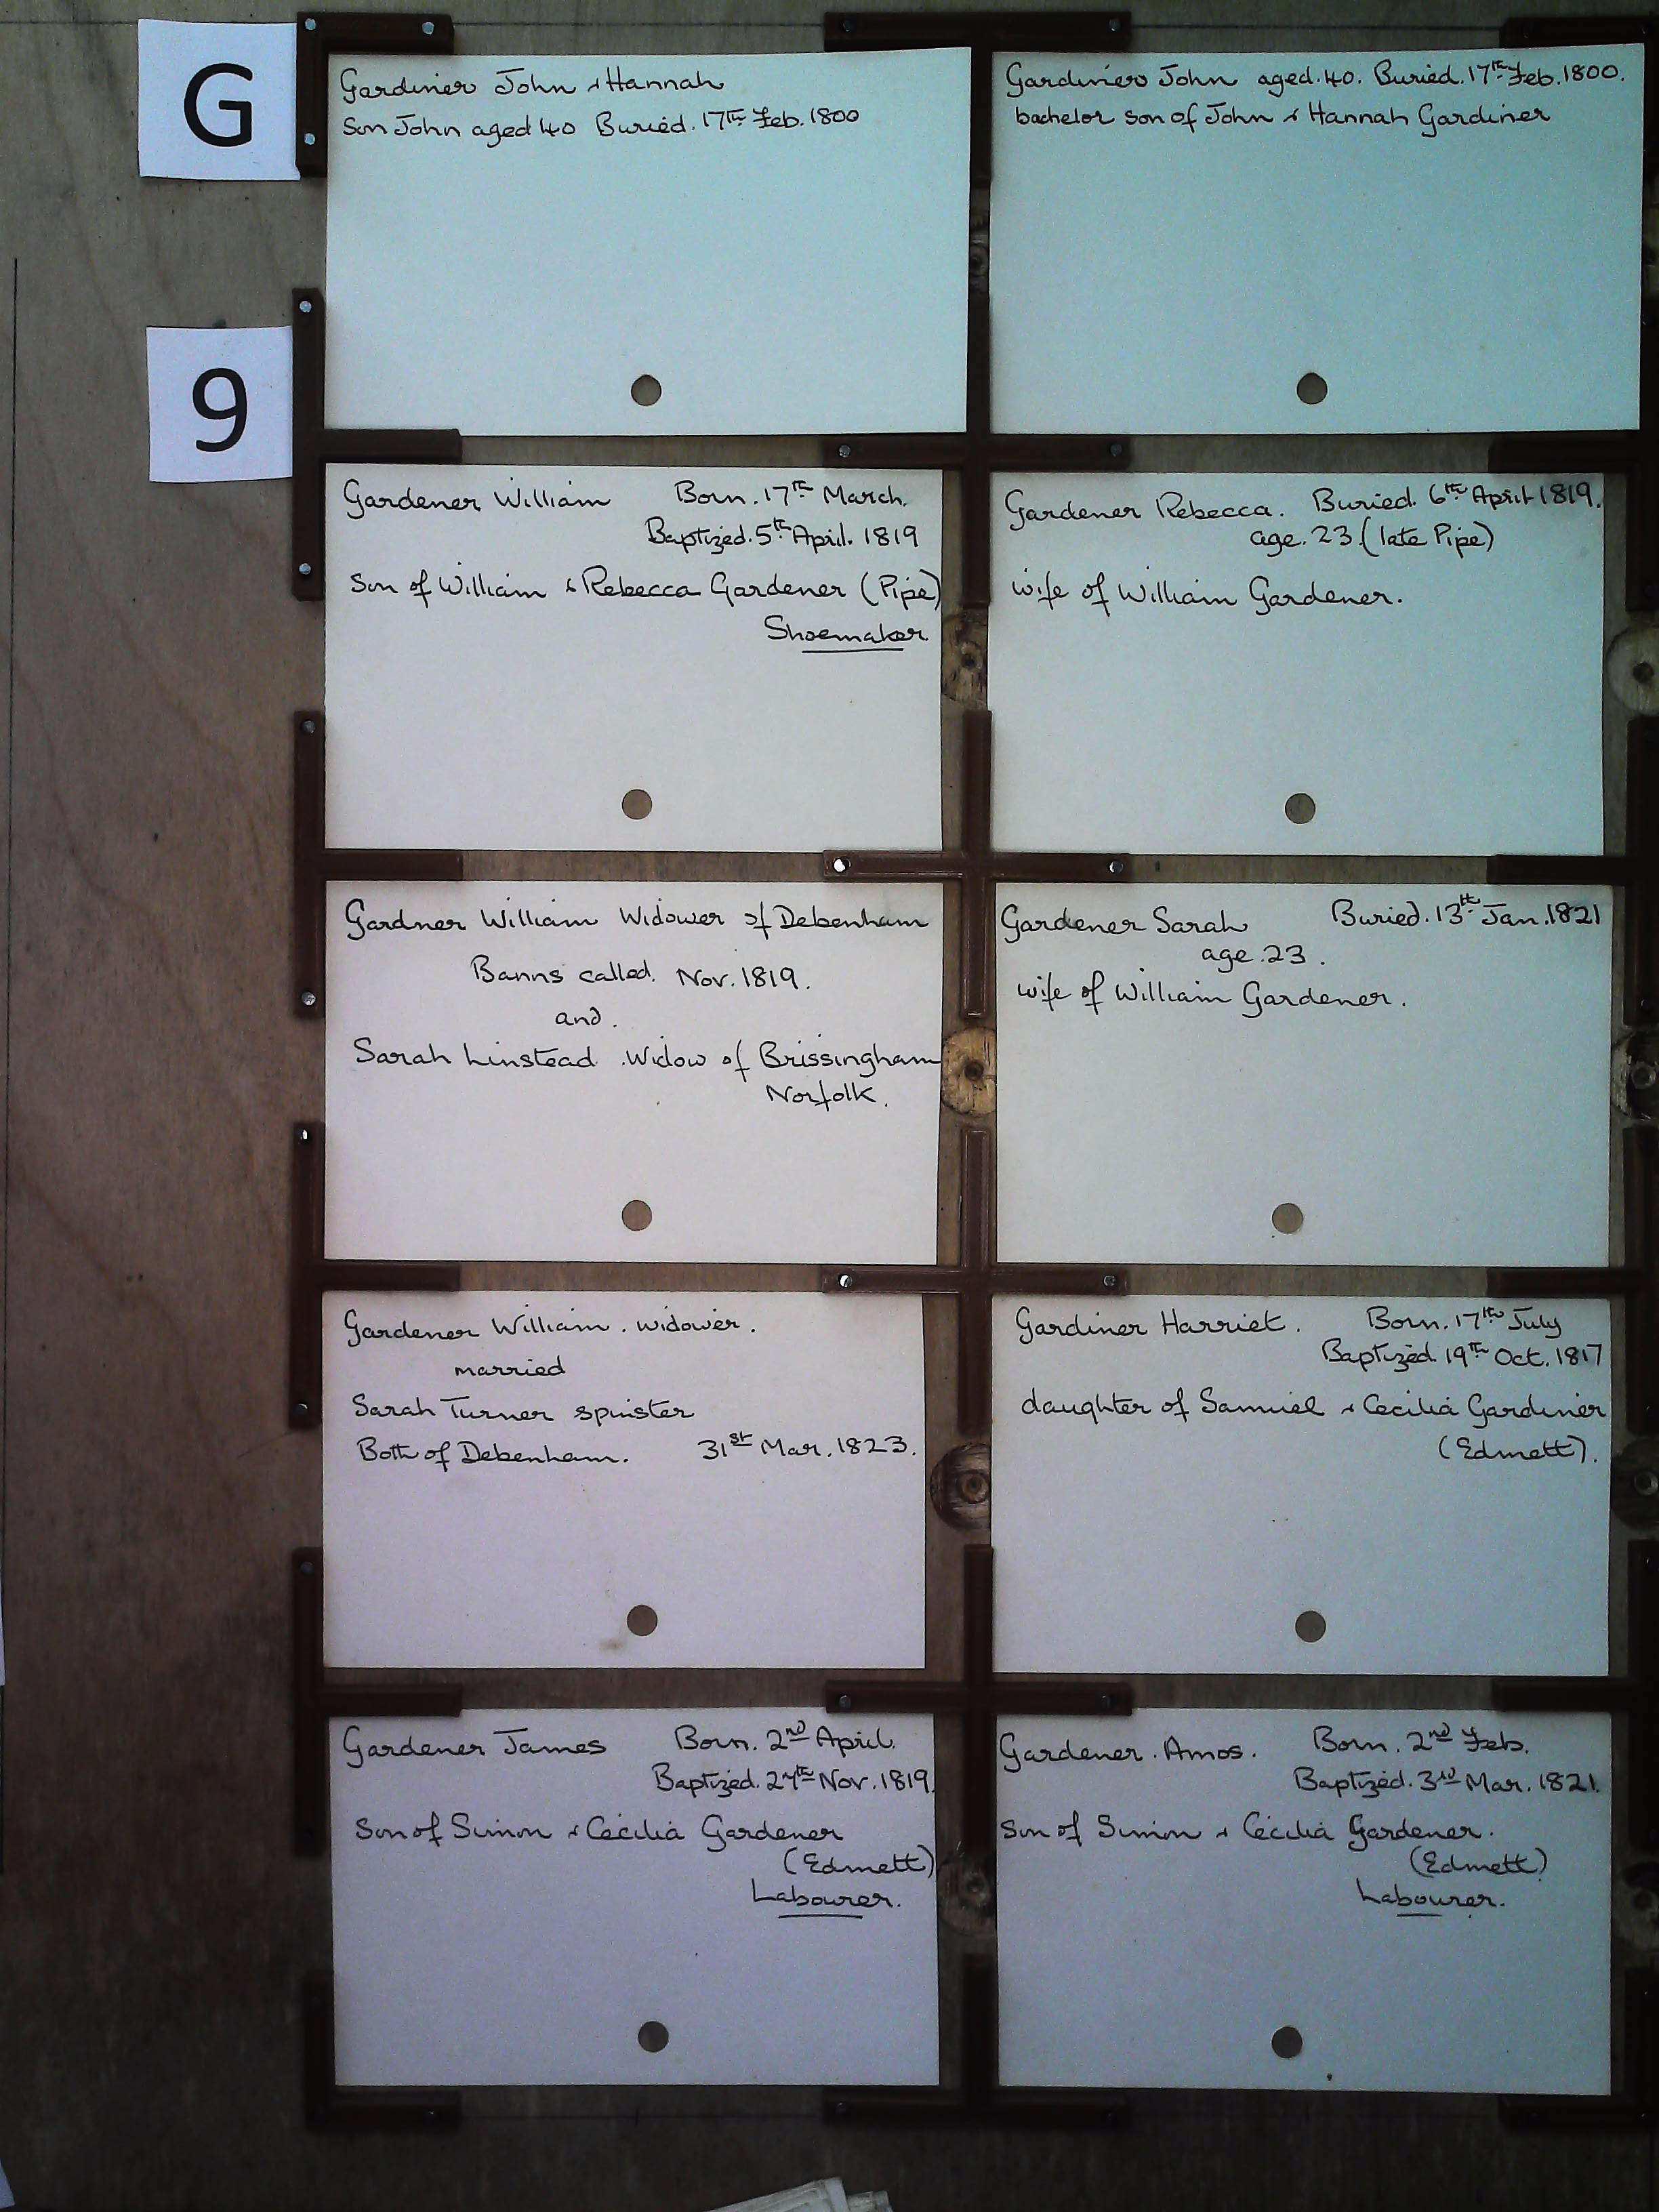 G
9
Gardiner John & Hannah
Son John aged 40 Buried. 17TH Feb. 1800
Gardiner John aged. 40. Buried. 17th Feb. 1800.
bachelor son of John & Hannah Gardiner
Gardener William Born. 17th March.
Baptized. 5th April. 1819
Son of William & Rebecca Gardener (Pipe)
Shoemaker.
Gardener Rebecca. Buried. 6th April 1819.
age. 23. (late Pipe)
wife of William Gardener.
Gardner William Widower of Debenham
Banns called. Nov. 1819.
and.
Sarah Linstead. Widow of Brissingham
Norfolk.
Gardener Sarah Buried. 13th Jan. 1821
age. 23.
wife of William Gardener.
Gardener William. widower.
married
Sarah Turner spinster
Both of Debenham. 31st Mar. 1823.
Gardiner Harriet. Born. 17th July
Baptized. 19th Oct. 1817
daughter of Samuel & Cecilia Gardiner
(Edmett).
Gardener James Born. 2nd April.
Baptized. 27th Nov. 1819.
Son of Simon & Cecilia Gardener
(Edmett)
Labourer.
Gardener. Amos. Born. 2nd Feb.
Baptized. 3rd Mar. 1821.
Son of Simon & Cecilia Gardener.
(Edmett)
Labourer.